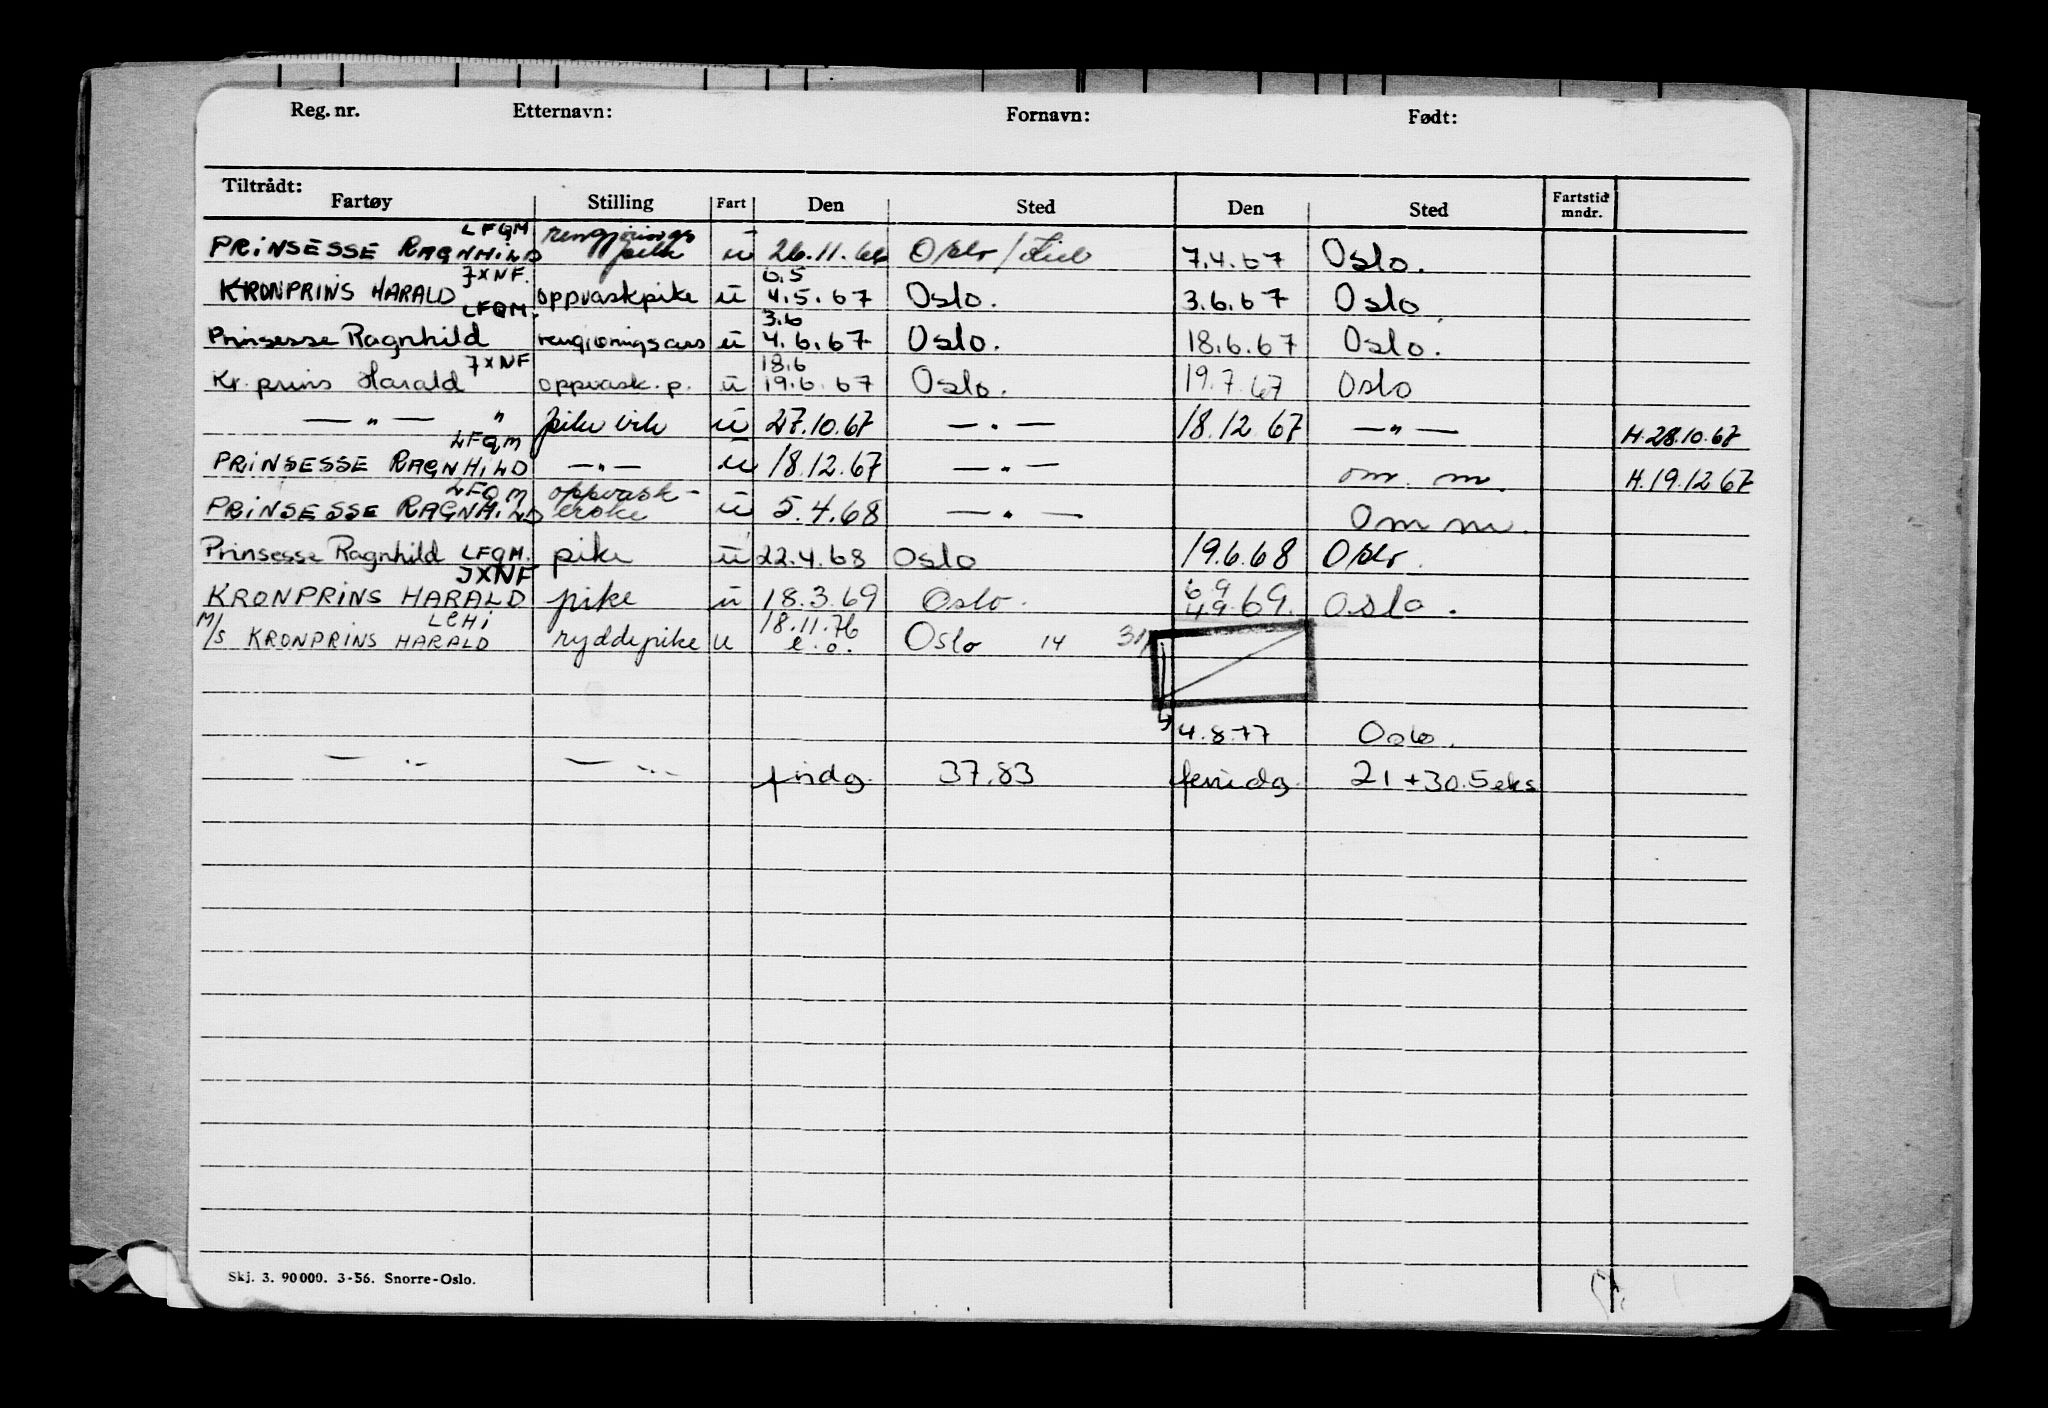 Reg. nr. Etternavn: Fornavn: Født:
Tiltrådt:
Fartøy Stilling Fart Den Sted Den Sted Fartstid mndr.
LFQM
PRINSESSE RAGNHILD rengjørings pike u 26.11.66 Oslo/Kiel 7.4.67 Oslo.
JXNF. 6.5
KRONPRINS HARALD oppvaskpike u 4.5.67 Oslo. 3.6.67 Oslo
LFQM. 3.6
Prinsesse Ragnhild u 4.6.67 Oslo. 18.6.67 Oslo.
JXNF 18.6
Kr. prins Harald oppvask.p. u 19.6.67 Oslo. 19.7.67 Oslo
— " — " pike vik u 27.10.67 — " — 18.12.67 — " — H.28.10.67
LFQM
PRINSESSE RAGNHILD — " — u 18.12.67 — " — om. m. H.19.12.67
LFQM oppvask-
PRINSESSE RAGNHILD erske u 5.4.68 — " — Om m.
Prinsesse Ragnhild LFQM. pike u 22.4.68 Oslo 19.6.68 Oslo.
JXNF 6 9
KRONPRINS HARALD pike u 18.3.69 Oslo. 4.9.69. Oslo.
LEHI 18.11.76
M/S KRONPRINS HARALD ryddepike u e.o. Oslo 14
4.8.77 Oslo.
— " — — " — 37.83 feriedg. 21 + 30.5 eks
Skj. 3. 90 000. 3-56. Snorre-Oslo.